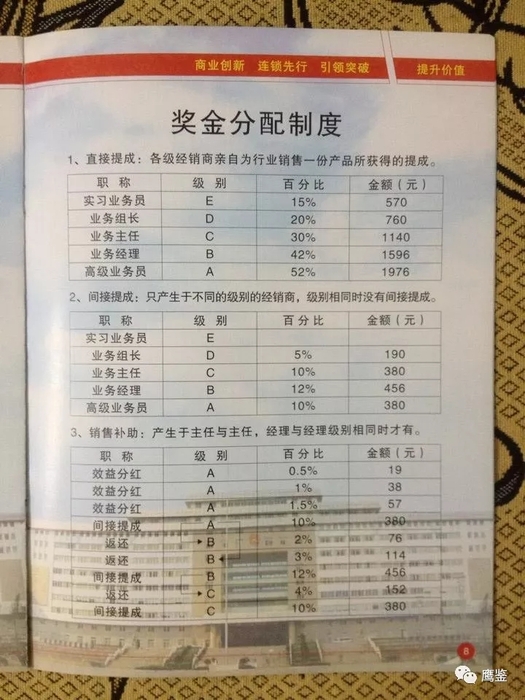 商业创新 连锁先行 引领突破 提升价值
奖金分配制度
1、直接提成：各级经销商亲自为行业销售一份产品所获得的提成。
职称 级别 百分比 金额（元）
实习业务员 E 15% 570
业务组长 D 20% 760
业务主任 C 30% 1140
业务经理 B 42% 1596
高级业务员 A 52% 1976
2、间接提成：只产生于不同的级别的经销商，级别相同时没有间接提成。
职称 级别 百分比 金额（元）
实习业务员 E
业务组长 D 5% 190
业务主任 C 10% 380
业务经理 B 12% 456
高级业务员 A 10% 380
3、销售补助：产生于主任与主任，经理与经理级别相同时才有。
职称 级别 百分比 金额（元）
效益分红 A 0.5% 19
效益分红 A 1% 38
效益分红 A 1.5% 57
间接提成 A 10% 380
返还 B 2% 76
B 3% 114
间接提成 B 12% 456
返还 C 4% 152
间接提成 C 10% 380
8
鹰鉴